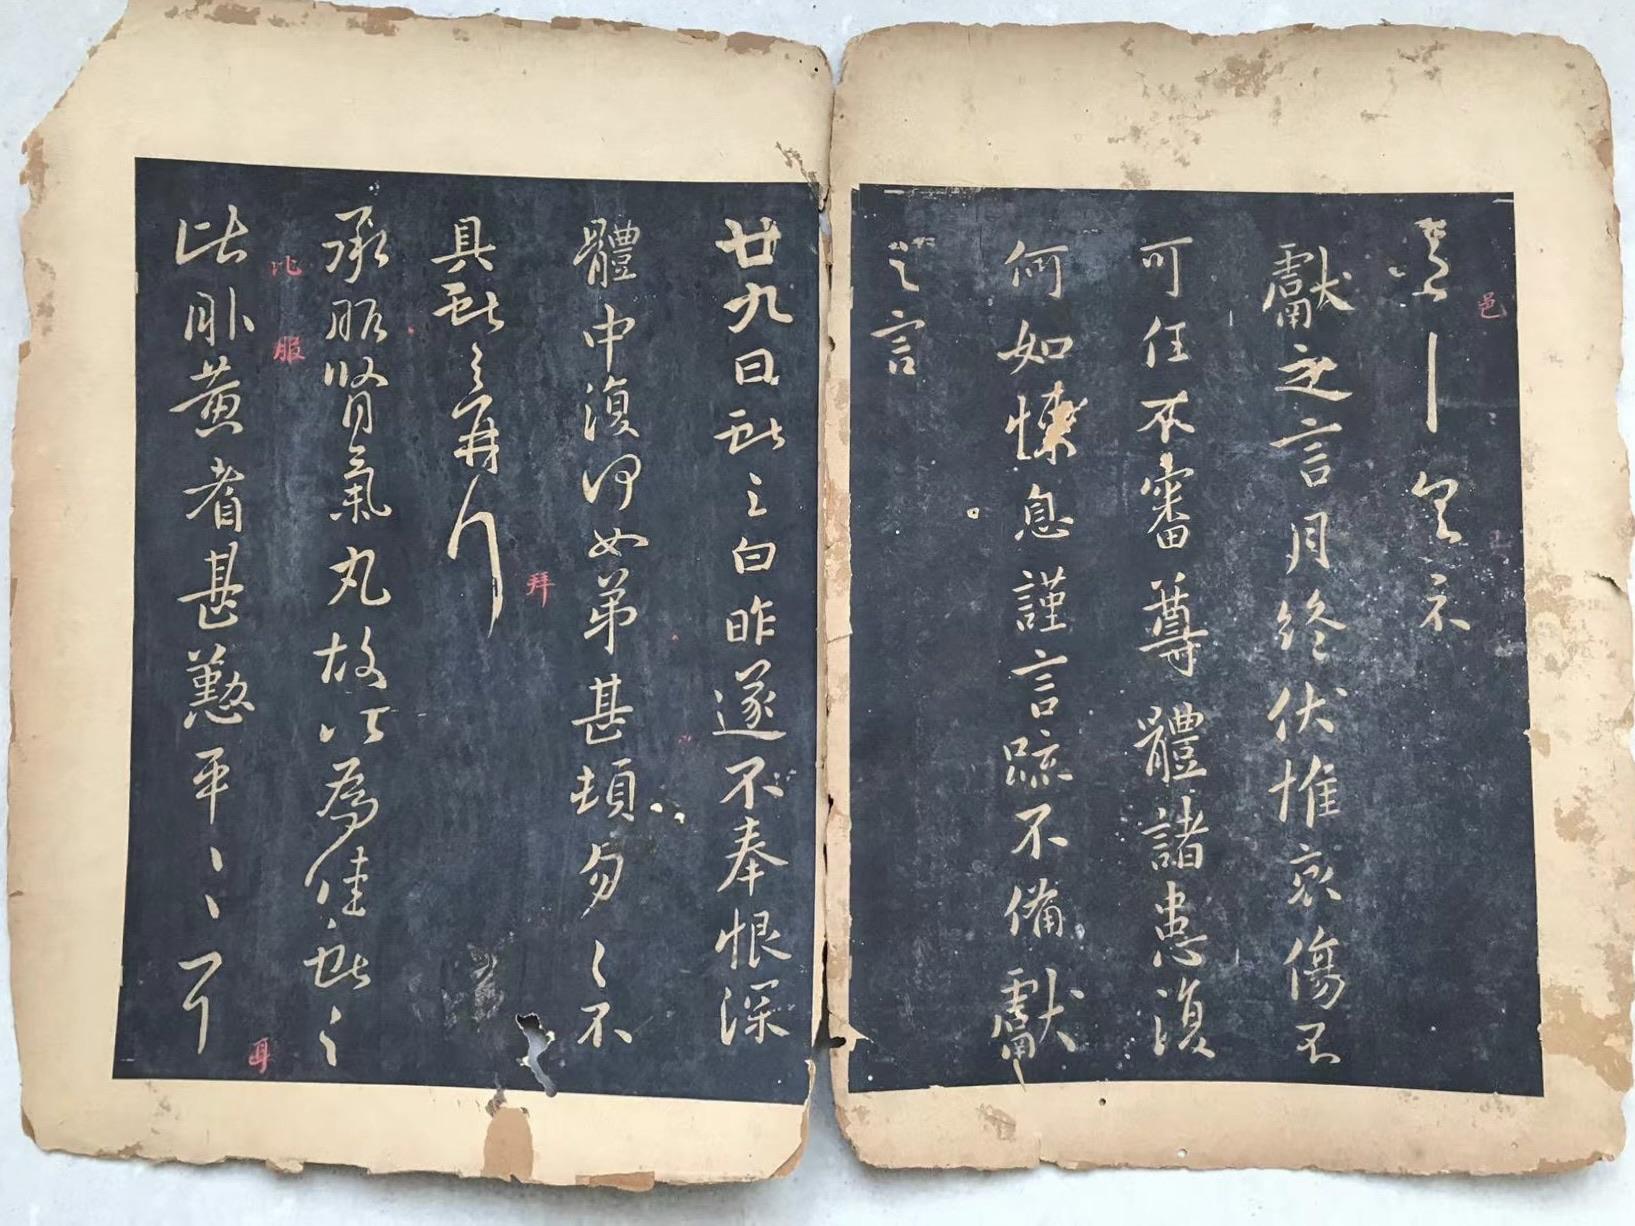 邑
不
獻之言月終伏惟哀傷不
可任不審尊體諸患復
何如悚息謹言疏不備獻
之言
廿九日獻之白昨遂不奉恨深
體中復何如弟甚頓匆〻不
具獻之再拜
拜
承服腎氣丸故以為佳獻之
比
服
比服黃耆甚懃平〻耳
耳